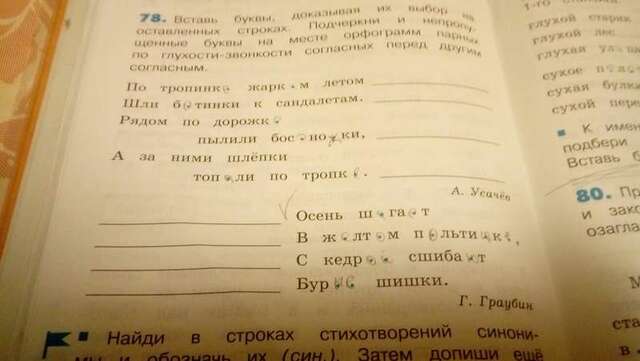 78. Вставь буквы, доказывая их выбор на
оставленных строках. Подчеркни и непропу-
щенные буквы на месте орфограмм парных
по глухости-звонкости согласных перед другим
согласным.
По тропинке жарким летом
Шли ботинки к сандалетам.
Рядом по дорожке
пылили босоножки,
А за ними шлёпки
топали по тропке.
А. Усачёв
Осень шагает
В жёлтом пальтишке,
С кедров сшибает
Бурые шишки.
Г. Граубин
Найди в строках стихотворений синони-
мы и обозначь их (син.). Затем допиши ещё
1-го
глухой старик
глухой лес
глухая
сухое
сухая
сухой
К имен
подбери
Вставь б
80. Пр
и зако
озагла
М
ста
в